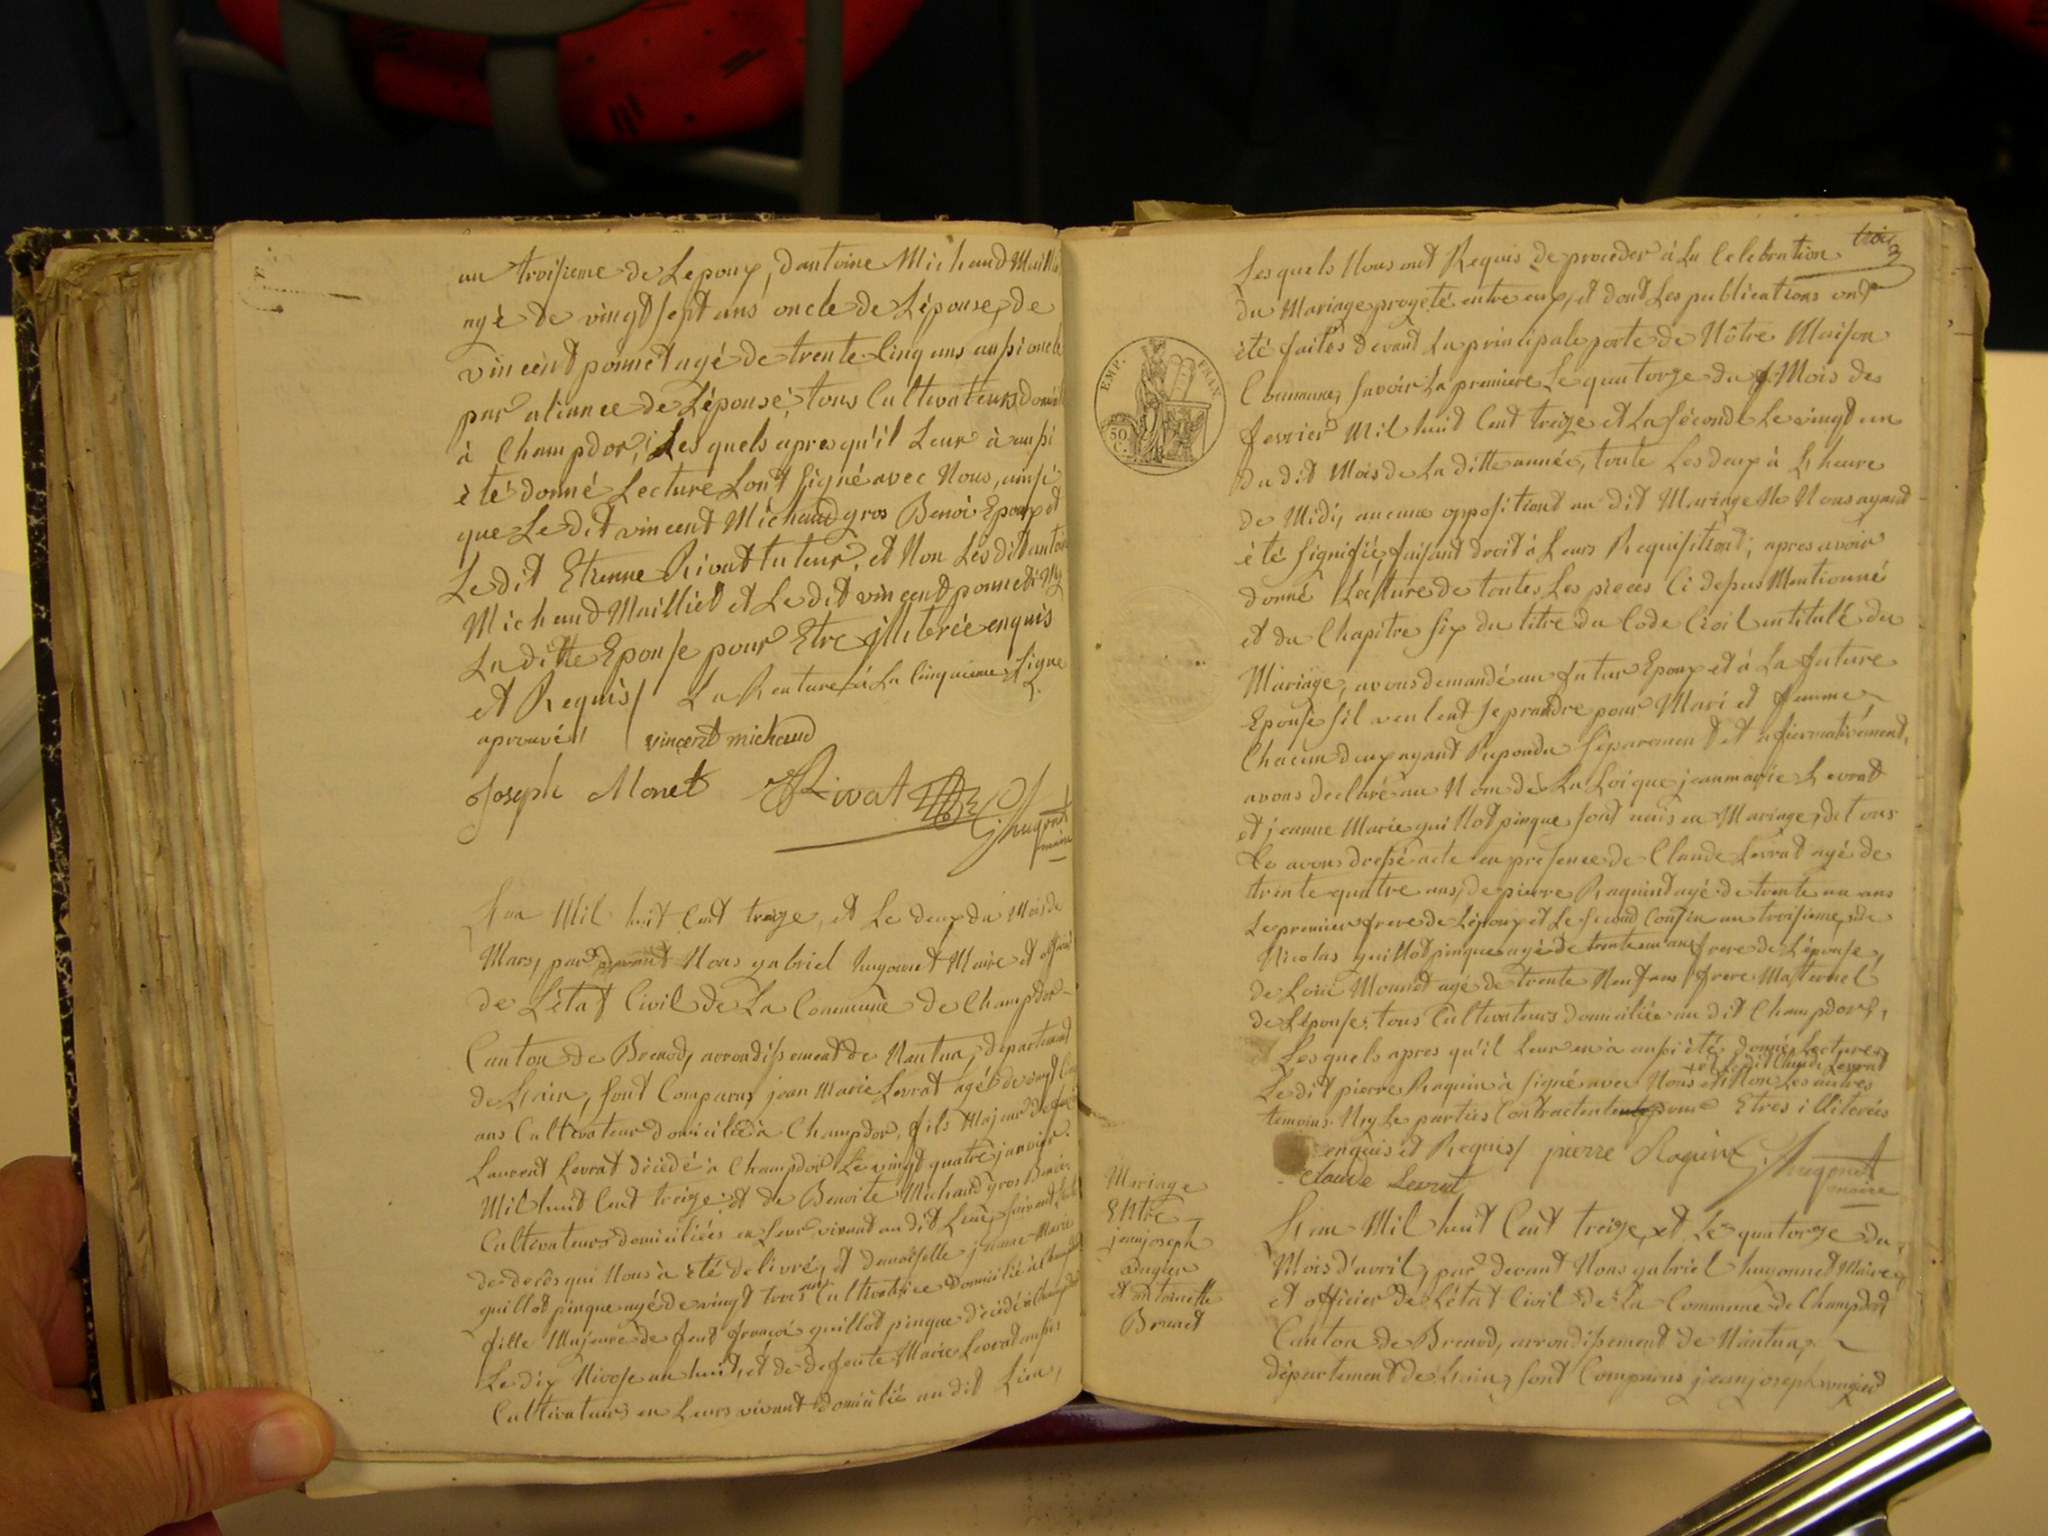 au troisieme de Lepoux, dantoine Michaud Maillie
agé de vingt sept ans oncle de Lépouse, de
vincent ponnet agé de trente Cinq ans aussi oncle
par aliance de Lépouse, tous Cultivateurs domici
à Champdor, Lesquels apres qu'il Leur à aussi
été donné Lecture Sont Signé avec Nous, ainsi
que Le dit vincent Michaud gros Benoi Epoux et
Le dit Etienne Rivat tuteur, et Non Les dit antoine
Michaud Mailliet et Le dit vincent ponnet Ny
La ditte Epouse pour Etre illiterée enquis
et Requis / La Renture à La Cinquieme Ligne
aprouvé / vincent michaud
Joseph Monet Rivat
hugonet
maire
L'an Mil huit Cent treize, et Le deux du Mois de
Mars, par devant Nous gabriel hugonnet Maire et officié
de L'état Civil de La Commune de Champdor
Canton de Brenod, arrondissement de Nantua, departement
de L'ain, Sont Comparus jean Marie Levrat agé de vingt Cinq
ans Cultivateur domicilié à Champdor, fils Majeur de feu
Laurent Levrat décédé à Champdor Le vingt quatre janvier
Mil huit Cent treize, et de Benoite Michaud gros Benoi
Cultivateurs domiciliées en Leur vivant au dit Lieu, suivant
de decès qui Nous à été delivré, et demoiselle jeanne Marie
guillot pinque agé de vingt trois ans Cultivatrice domicilié à Champdor
fille Majeure de feut françoi guillot pinque décédé à Champdor
Le dix Nivose an huit, et de defeute Marie Levrat aussi
Cultivateurs en Leurs vivant domicilié au dit Lieu,
trois
3
EMP. FRAN
50
C.
Lesquels Nous ont Requis de proceder à La Celebration
du Mariage projeté entre eux, et dont Les publications ont
été faites devant La principale porte de Nôtre Maison
Commune, Savoir La premiere Le quatorze du Mois de
fevrier Mil huit Cent treize et La Séconde Le vingt un
du dit Mois de La ditte année, toute Les deux à L'heure
de Midi, aucune oppositiont au dit Mariage Ne Nous ayant
été Signifié, faisant droit à Leurs Requisitiont, apres avoir
donné Lecture de toutes Les pieces Ci dessus Mentionné
et du Chapitre Six du titre du Code Civil intitulé du
Mariage, avons demandé au futur Epoux et à La future
Epouse S'il veulent Se prandre pour Mari et femme,
Chacun d'eux ayant Repondu Séparement et afirmativement,
avons declaré au Nom dé La Loi que jean marie Levrat
et jeanne Marie guillot pinque Sont unis en Mariage, de tous
Ce avons dressé acte en presence de Claude Levrat agé de
trente quatre ans, de pierre Raquint agé de trente un ans
Le premier frere de Lépoux et Le Second Cousin au troisieme, de
Nicolas guillot pinque agé de trente un ans frere de Lépouse,
de Loui Monnet agé de trente Neuf ans frere Maternel
de Lépouse, tous Cultivateurs domiciliés au dit Champdor,
Lesquels apres qu'il Leur en à aussi été donné Lecture,
et Ledit Claude Levrat
Le dit pierre Raquin à Signé avec Nous et Non Les autres
temoins Ny Le parties Contractente pour Etres illiterées
enquis et Requis / pierre Raquin hugonet
maire
Claude Levrat
Mariage
Entre
jean joseph
augier
et antoinette
Brunet
L'an Mil huit Cent treize, et Le quatorze du
Mois d'avril, par devant Nous gabriel hugonnet Maire
et officier de L'état Civil de La Commune de Champdor
Canton de Brenod, arrondissement de Nantua,
département de L'ain, Sont Comparus jean joseph augier